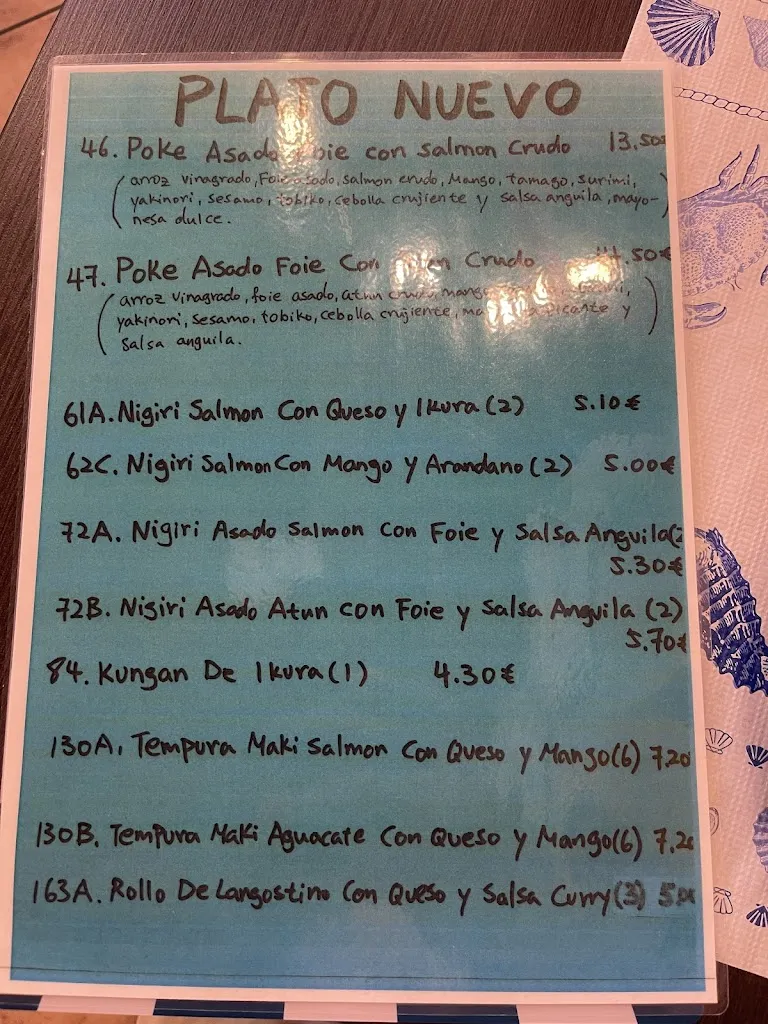 PLATO NUEVO
46. Poke Asado Foie con Salmon Crudo 13.50€
(arroz vinagrado, Foie asado, salmon crudo, Mango, tamago, surimi,
yakinori, sesamo, tobiko, cebolla crujiente y salsa anguila, mayo-
nesa dulce.
47. Poke Asado Foie Con Atun Crudo 14.50€
(arroz vinagrado, foie asado, atun crudo, mango,
yakinori, sesamo, tobiko, cebolla crujiente, picante y
salsa anguila.
61A. Nigiri Salmon Con Queso y Ikura (2) 5.10€
62C. Nigiri Salmon Con Mango y Arandano (2) 5.00€
72A. Nigiri Asado Salmon Con Foie y Salsa Anguila (2
5.30€
72B. Nigiri Asado Atun con Foie y Salsa Anguila (2)
5.70€
84. Kungan De Ikura (1) 4.30€
130A. Tempura Maki Salmon Con Queso y Mango (6) 7.20
130B. Tempura Maki Aguacate Con Queso y Mango (6) 7.20
163A. Rollo De Langostino Con Queso y Salsa Curry (3)